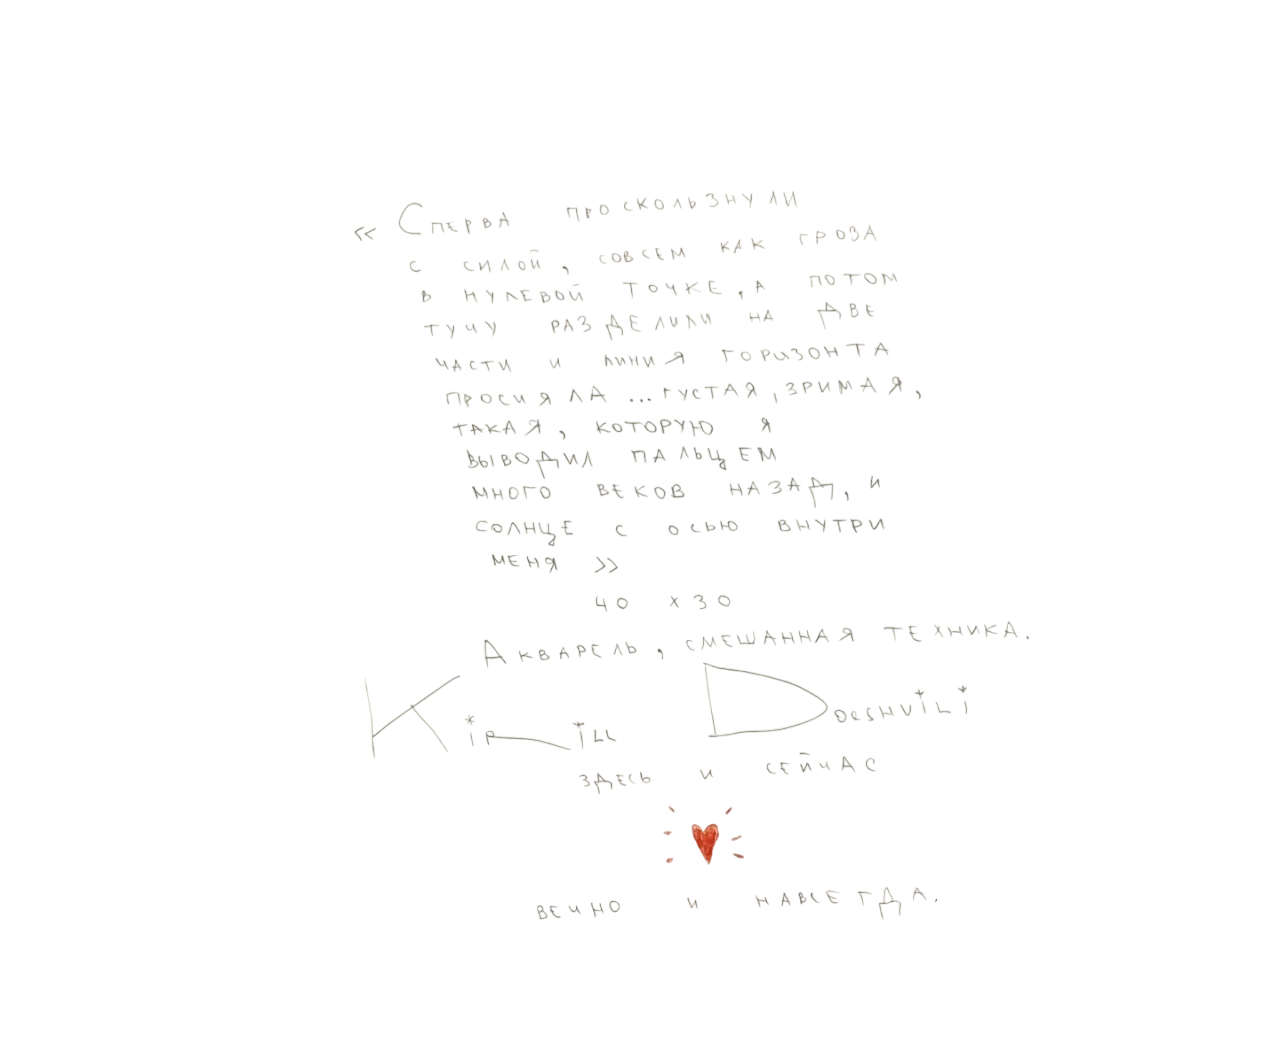 « Сперва проскользнули
с силой, совсем как гроза
в нулевой точке, а потом
тучу разделили на две
части и линия горизонта
просияла ... густая, зримая,
такая, которую я
выводил пальцем
много веков назад, и
солнце с осью внутри
меня »
40 х 30
Акварель, смешанная техника.
Kirill Doeshvili
здесь и сейчас
вечно и навсегда.